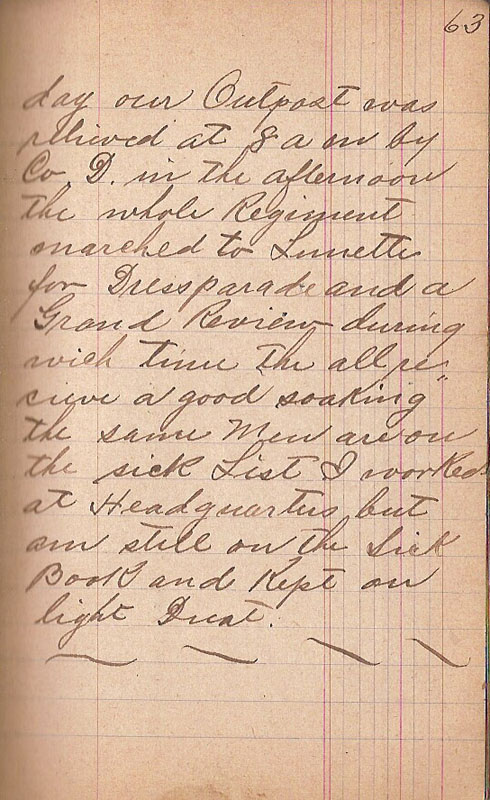 63
day our Outpost was
relieved at 8 a m by
Co. D. in the afternoon
the whole Regiment
marched to Lunette
for Dressparade and a
Grand Review during
wich time the all re"
cieve a good soaking
the same Men are on
the sick List I worked
at Headquarters, but
am still on the Sick
Book and Kept on
light Duat.